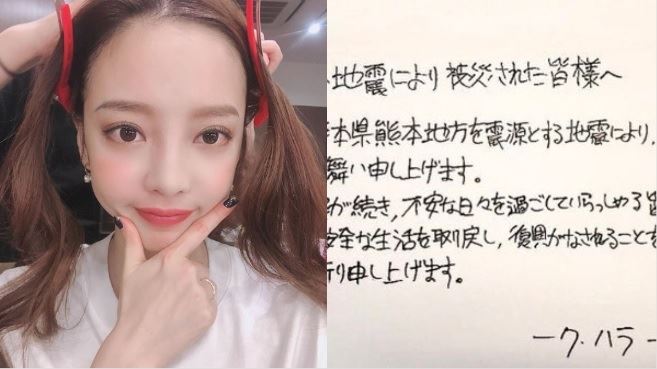 地震により被災された皆様へ
本県熊本地方を震源とする地震により、
舞い申し上げます。
が続き、不安な日々を過ごしていらっしゃる皆
安全な生活を取り戻し、復興がなされることを
祈り申し上げます。
ーク・ハラー